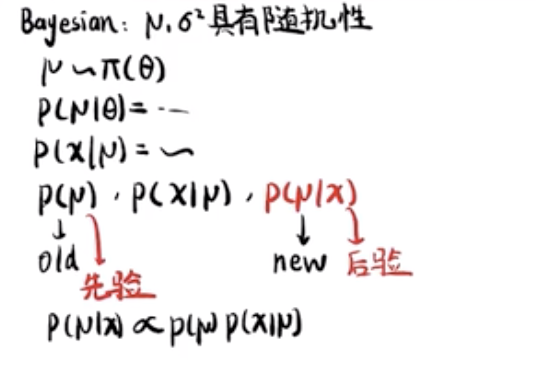 Bayesian: μ, σ² 具有随机性
μ ~ π(θ)
P(μ|θ) = ...
P(x|μ) = ~
p(μ), p(x|μ), p(μ|x)
↓ ↘ ↓ ↘
old 先验 new 后验
P(μ|x) ∝ p(μ) p(x|μ)